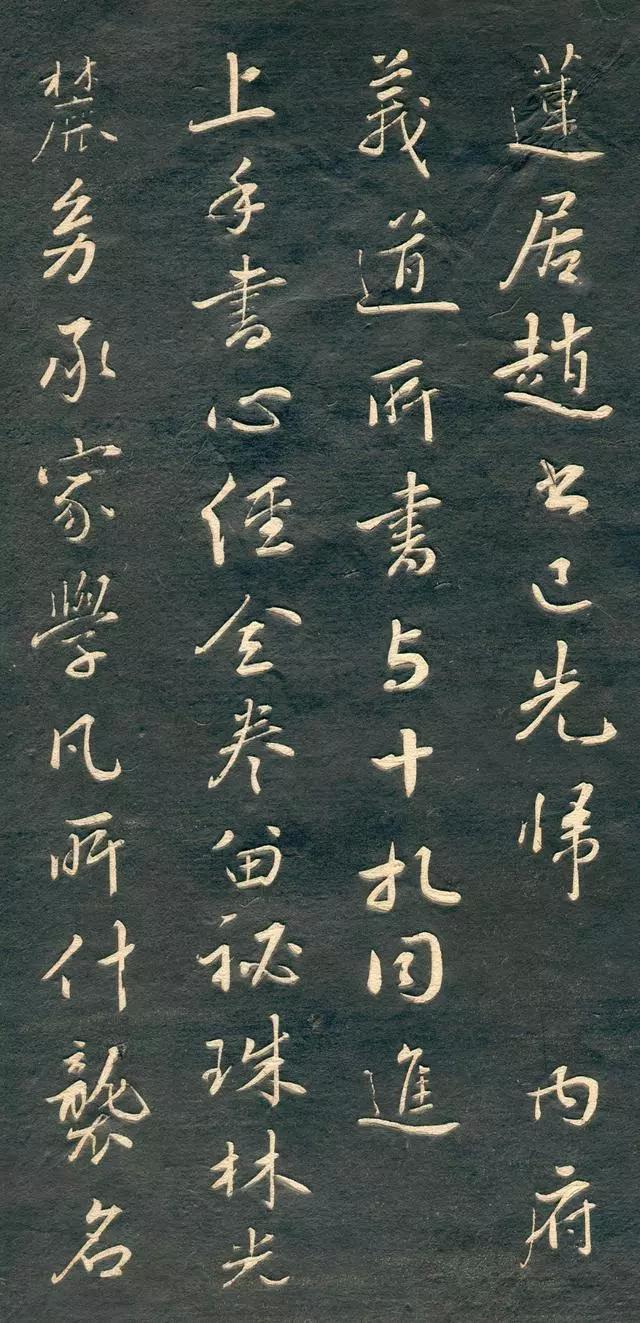 蓮居趙書已先歸 內府
義道所書与十札同進
上手書心經全卷留祕珠林光
麓旁承家學凡所什襲名